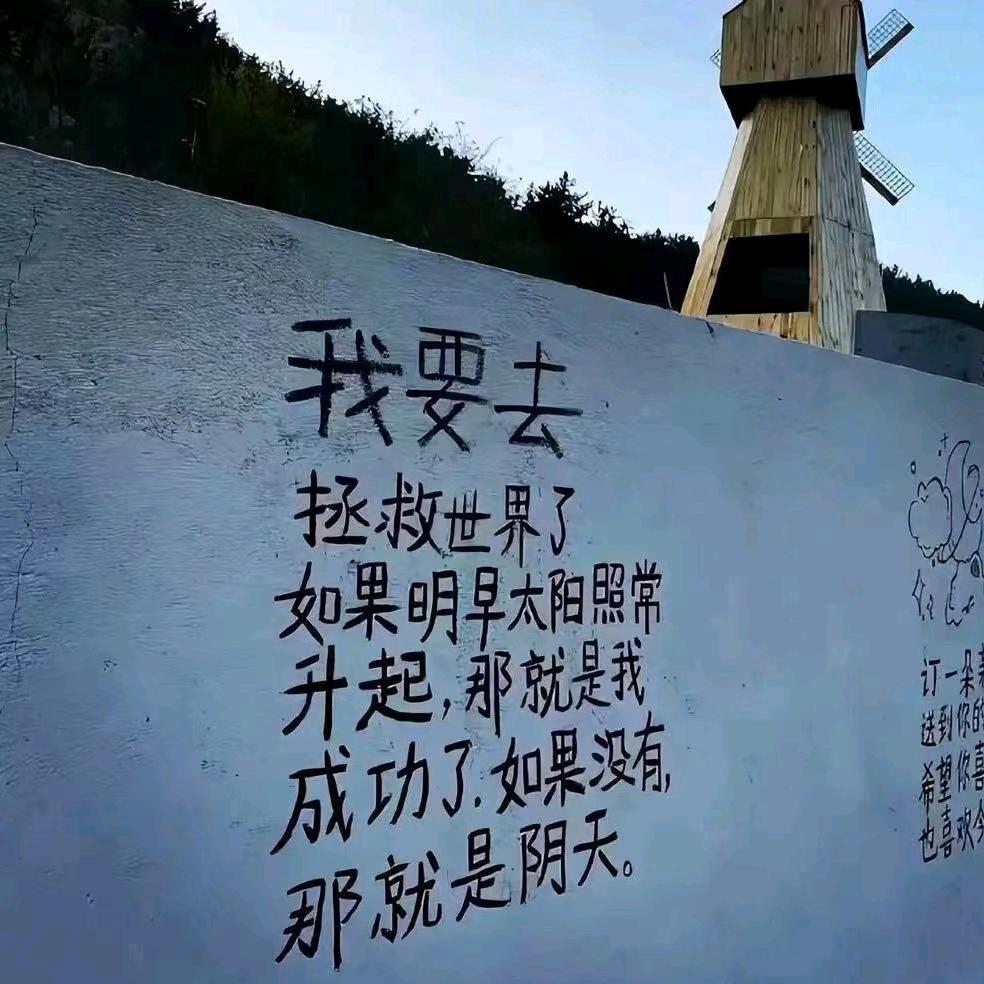 我要去
拯救世界了
如果明早太阳照常
升起,那就是我
成功了.如果没有,
那就是阴天。
订一朵
送到你的
希望你喜
也喜欢今